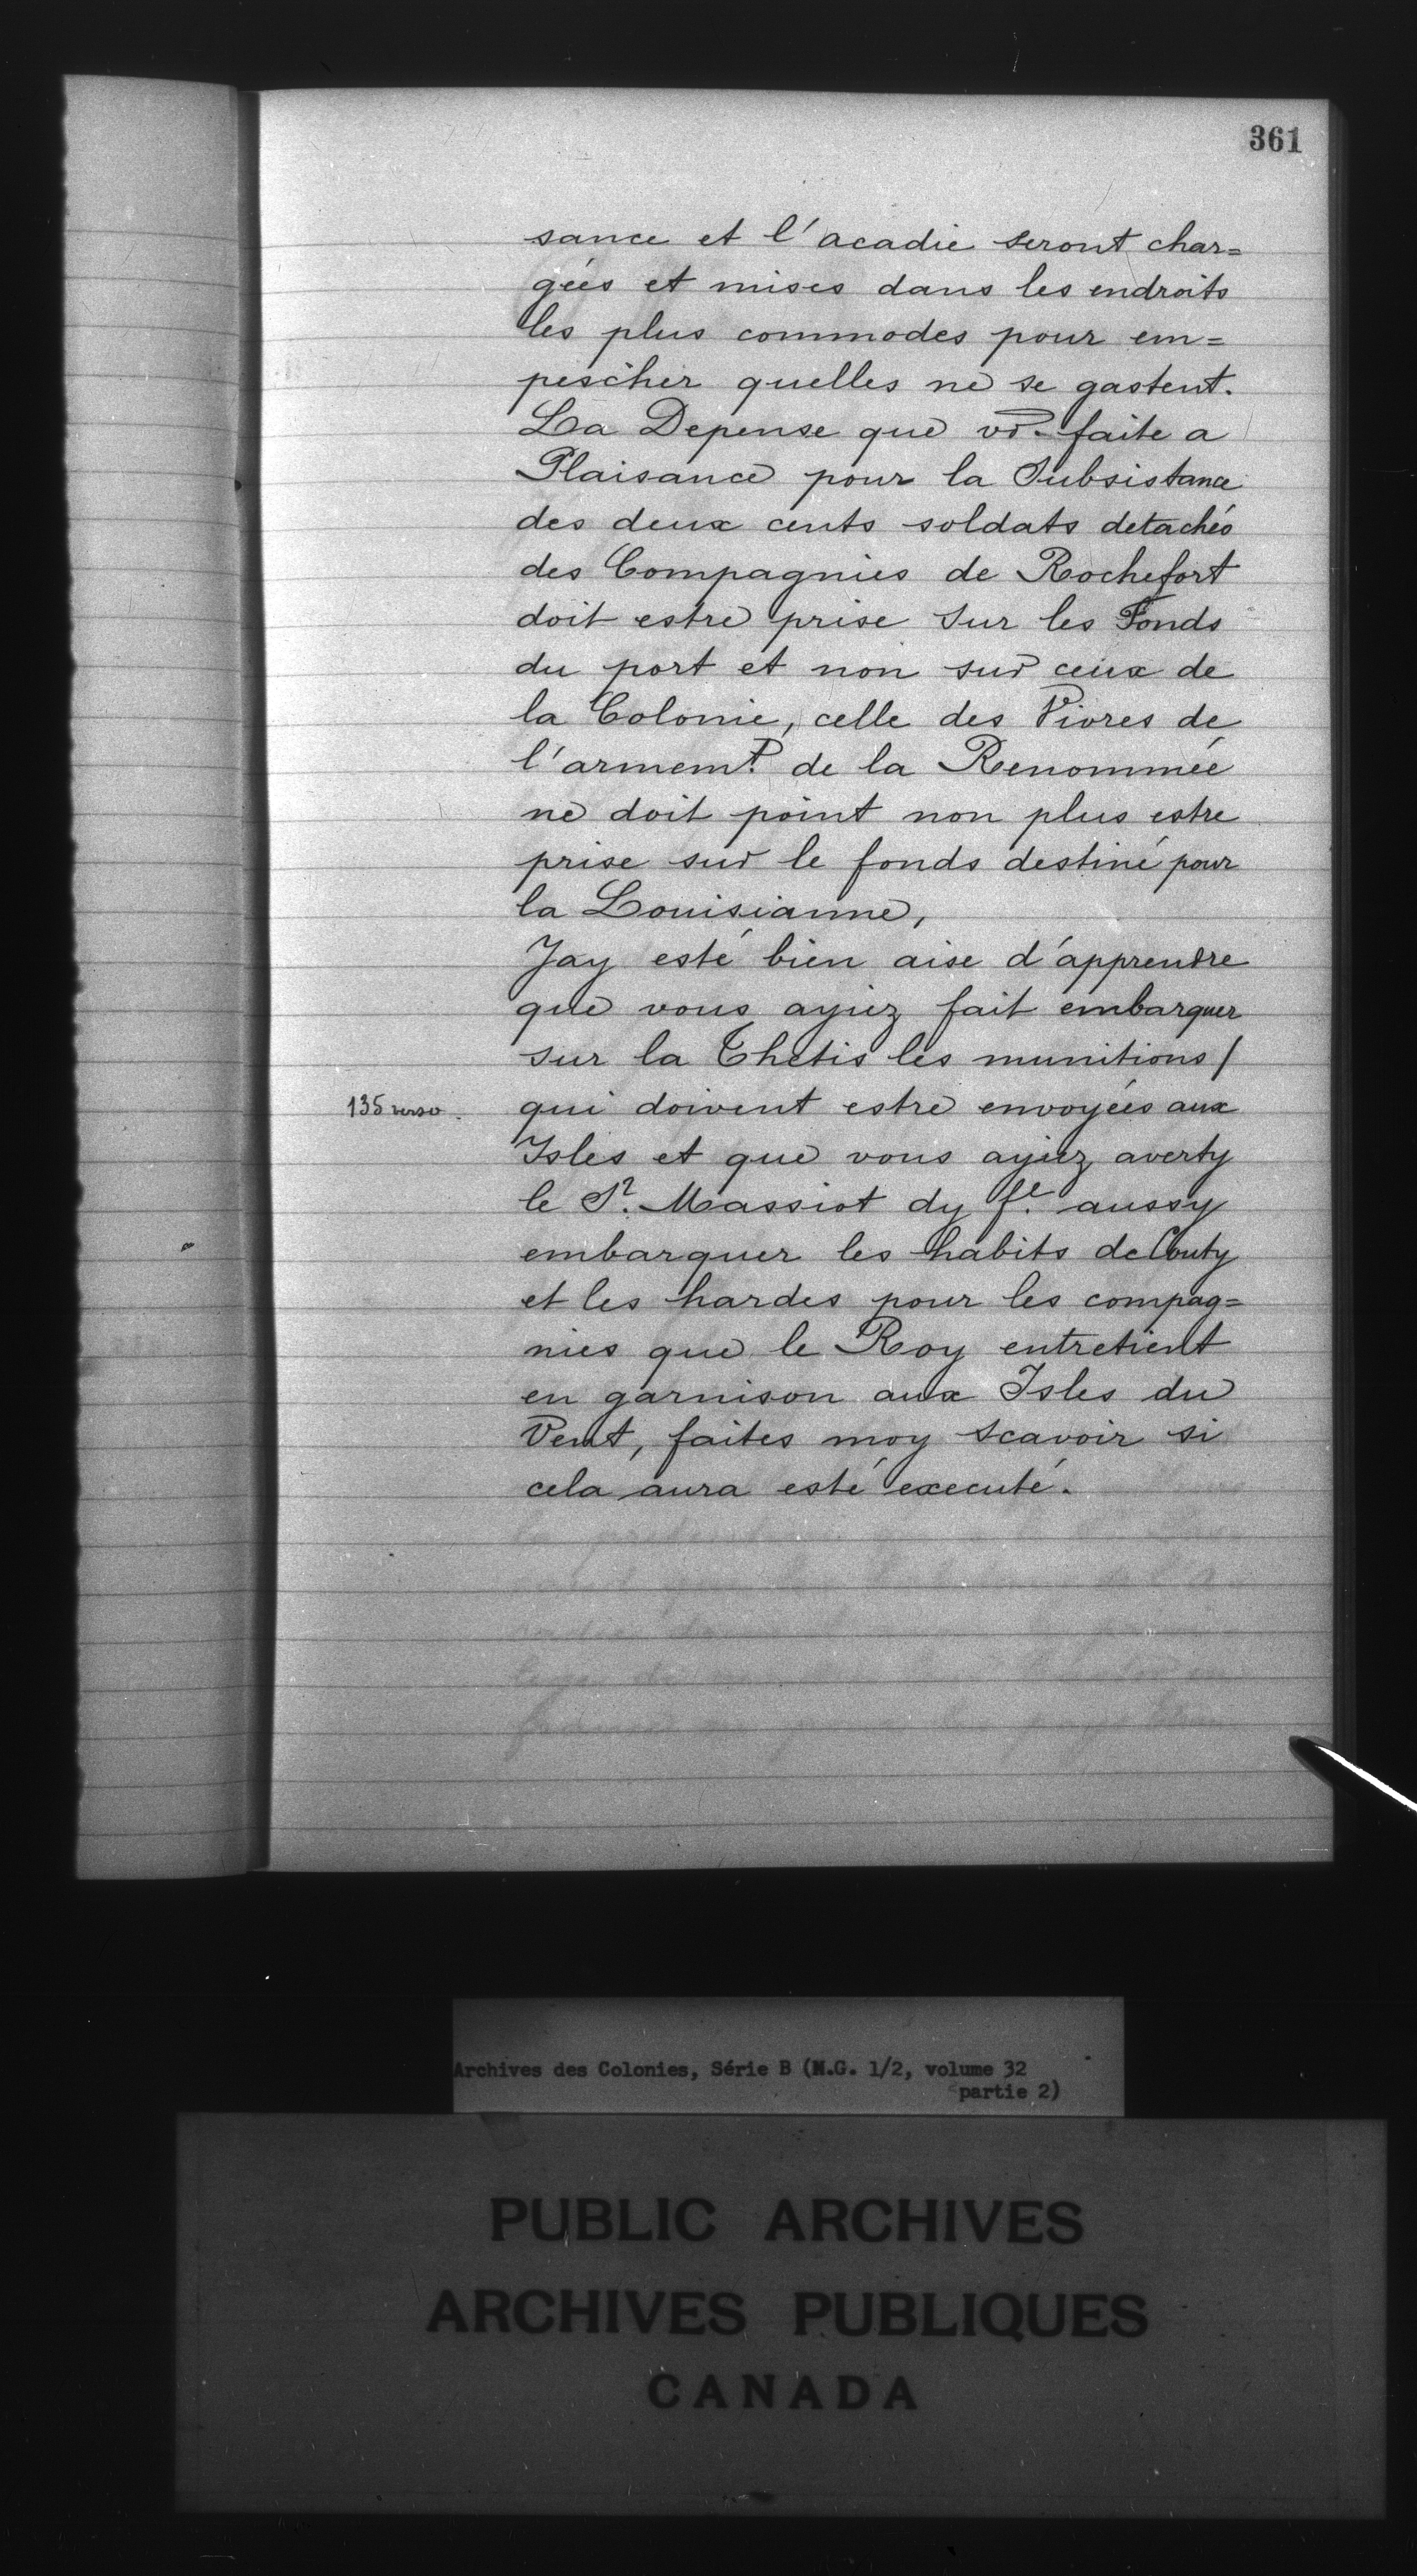 361
sance et l'acadie seront char=
gées et mises dans les endroits
les plus commodes pour em=
pescher quelles ne se gastent.
La Depense que faite a
Plaisance pour la Subsistance
des deux cents soldats detachés
des Compagnies de Rochefort
doit estre prise sur les Fonds
du port et non sur ceux de
la Colonie, celle des Vivres de
l'armemt. de la Renommée
ne doit point non plus estre
prise sur le fonds destiné pour
la Louisianne,
Jay esté bien aise d'apprendre
que vous ayiez fait embarquer
sur la Thetis les munitions /
135 verso. qui doivent estre envoyées aux
Isles et que vous ayiez averty
le Sr. Massiot dy fe. aussy
embarquer les habits de
et les hardes pour les compag=
nies que le Roy entretient
en garnison aux Isles du
Vent, faites moy scavoir si
cela aura esté executé.
Archives des Colonies, Série B (M.G. 1/2, volume 32
partie 2)
PUBLIC ARCHIVES
ARCHIVES PUBLIQUES
CANADA